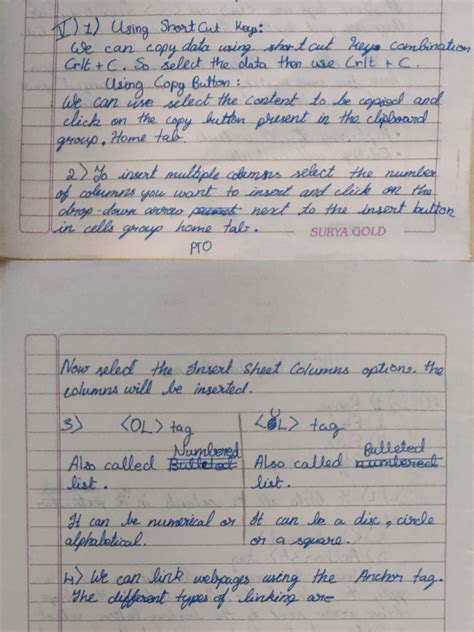 V) 1) Using Short Cut Keys:
We can copy data using short cut keys combination
Crlt + C. So select the data then use Crlt + C.
Using Copy Button:
We can use select the content to be copied and
click on the copy button present in the clipboard
group, Home tab.
2) To insert multiple columns select the number
of columns you want to insert and click on the
drop-down arrow next to the insert button
in cells group home tab.
SURYA GOLD
PTO
Now select the Insert Sheet Columns options. the
columns will be inserted.
3) <OL> tag <UL> tag
Numbered Bulleted
Also called Bulleted Also called numbered
list. list.
It can be numerical or It can be a disc, circle
alphabetical. or a square.
4) We can link webpages using the Anchor tag.
The different types of linking are